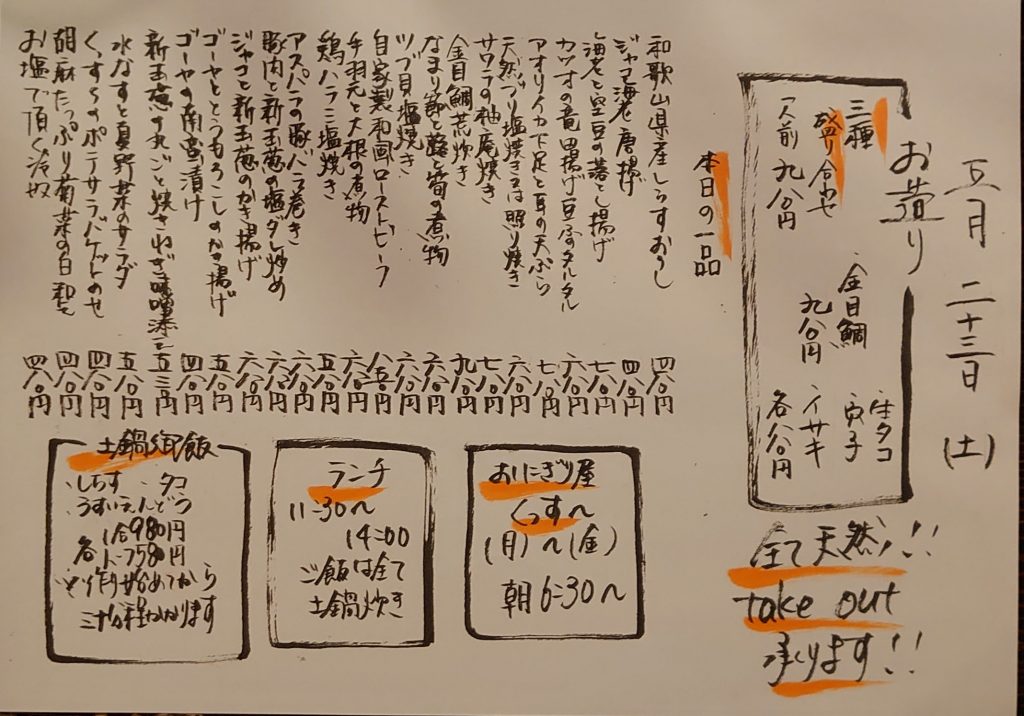 五月 二十三日 (土)
お造り
三種
盛り合わせ
一人前 九八〇円
金目鯛
九八〇円
生タコ
イサキ
各八〇円
全て天然!!
take out
承ります!!
本日の一品
和歌山県産しらすおろし 四八〇円
ジャコ海老唐揚げ 四八〇円
海老と空豆の落とし揚げ 七八〇円
カツオの竜田揚げ豆腐タルタル 六八〇円
アオリイカ下足と耳の天ぷら 七八〇円
天然ブリ塩焼き又は照り焼き 六八〇円
サワラの柚庵焼き 七八〇円
金目鯛荒炊き 九八〇円
なまり節と蕗筍の煮物 六八〇円
ツブ貝塩焼き 六八〇円
自家製和風ローストビーフ 八五〇円
手羽元と大根の煮物 六八〇円
鶏ハラミ塩焼き 五八〇円
アスパラの豚バラ巻き 六八〇円
豚肉と新玉葱の塩ダレ炒め 六八〇円
ジャコと新玉葱のかき揚げ 六八〇円
ゴーヤととうもろこしのかき揚げ 五八〇円
ゴーヤの南蛮漬け 四八〇円
新玉葱の丸ごと焼きねぎ味噌添え 五三〇円
水なすと夏野菜のサラダ 五八〇円
くっすらのポテサラバゲットのせ 四八〇円
胡麻たっぷり菊菜の白和え 四八〇円
お塩で頂く冷奴 四八〇円
おにぎり屋
くっす〜
(月)〜(金)
朝6:30〜
ランチ
11:30〜
14:00
ご飯は全て
土鍋炊き
土鍋御飯
しらす タコ
うすいえんどう
各
1合980円
1.5合1580円
作り始めてから
三十分程かかります